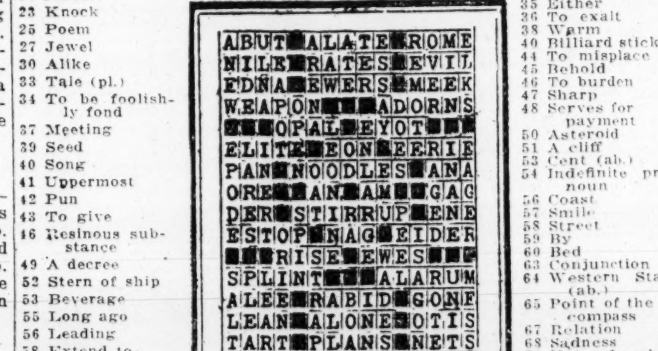 23 Knock
25 Poem
27 Jewel
30 Alike
33 Tale (pl.)
34 To be foolish-
ly fond
37 Meeting
39 Seed
40 Song
41 Uppermost
42 Pun
43 To give
46 Resinous sub-
stance
49 A decree
52 Stern of ship
53 Beverage
55 Long ago
56 Leading
58 Extend to
ABUT ALATE ROME
NILE RATES EVIL
EDNA EWERS MEEK
WEAPON ADORNS
OPAL EYOT
ELITE EON EERIE
PAN NOODLES ANA
ORE AN AM GAG
DER STIRRUP ENE
ESTOP NAG EIDER
RISE EWES
SPLINT ALARUM
ALEE RABID GONE
LEAN ALONE OTIS
TART PLANS NETS
35 Either
36 To exalt
38 Warm
40 Billiard stick
44 To misplace
45 Behold
46 To burden
47 Sharp
48 Serves for
payment
50 Asteroid
51 A cliff
53 Cent (ab.)
54 Indefinite pr
noun
56 Coast
57 Smile
58 Street
59 By
60 Bed
63 Conjunction
64 Western Sta
(ab.)
65 Point of the
compass
67 Relation
68 Sadness